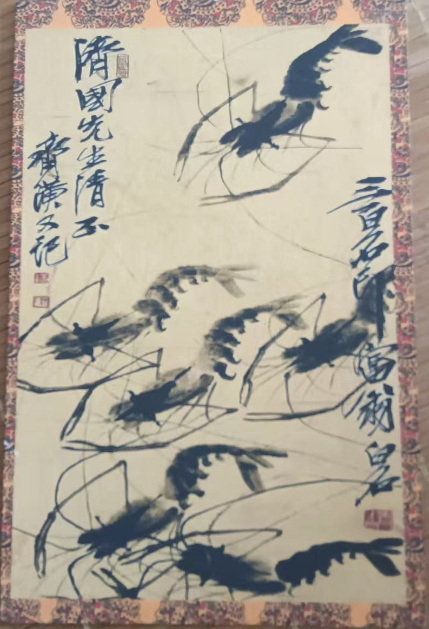 三百石印富翁白石
濟國先生清正
齊璜又記